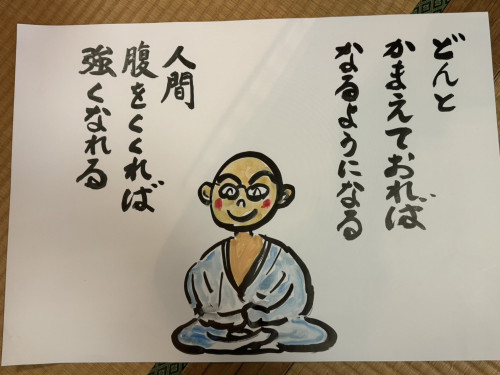 どんと
かまえておれば
なるようになる
人間
腹をくくれば
強くなれる